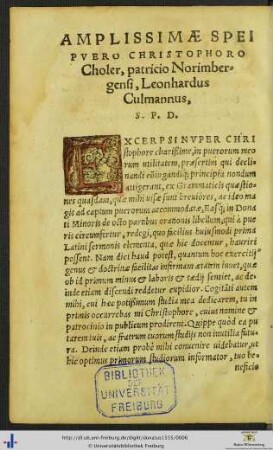 AMPLISSIMÆ SPEI
PVERO CHRISTOPHORO
Choler, patricio Norimber-
gensi, Leonhardus
Culmannus,
S. P. D.
EXCERPSI NVPER CHRI
stophore charissime, in puerorum meo
rum utilitatem, præsertim qui decli-
nandi coniugandiq; principia nondum
attigerant, ex Grammaticis quæstio-
nes quasdam, quæ mihi uisæ sunt breuiores, ac ideo ma-
gis ad captum puerorum accommodatæ, Easq; in Dona
ti Minoris de octo partibus orationis libellum, qui à pue
ris circumfertur, redegi, quo facilius huiusmodi prima
Latini sermonis elementa, quæ hic docentur, hauriri
possent. Nam dici haud potest, quantum hoc exercitij
genus & doctrinæ facilitas infirmam ætatem iuuet, quæ
ob id primum minus & laboris & tædij sentiet, ac de-
inde etiam discendi reddetur cupidior. Cogitãti autem
mihi, cui hec potissimum studia mea dedicarem, tu in
primis occurrebas mi Christophore, cuius nomine &
patrocinio in publicum prodirent. Quippe quòd ea pu
tarem tuis, ac fratrum tuorum studijs non inutilia futu-
ra. Deinde etiam probè mihi conuenire uidebatur, ut
hic optimus primorum studiorum informator, tuo be-
neficio
BIBLIOTHEK
DER
UNIVERSITÄT
FREIBURG
http://dl.ub.uni-freiburg.de/diglit/donatus1555/0006
© Universitätsbibliothek Freiburg